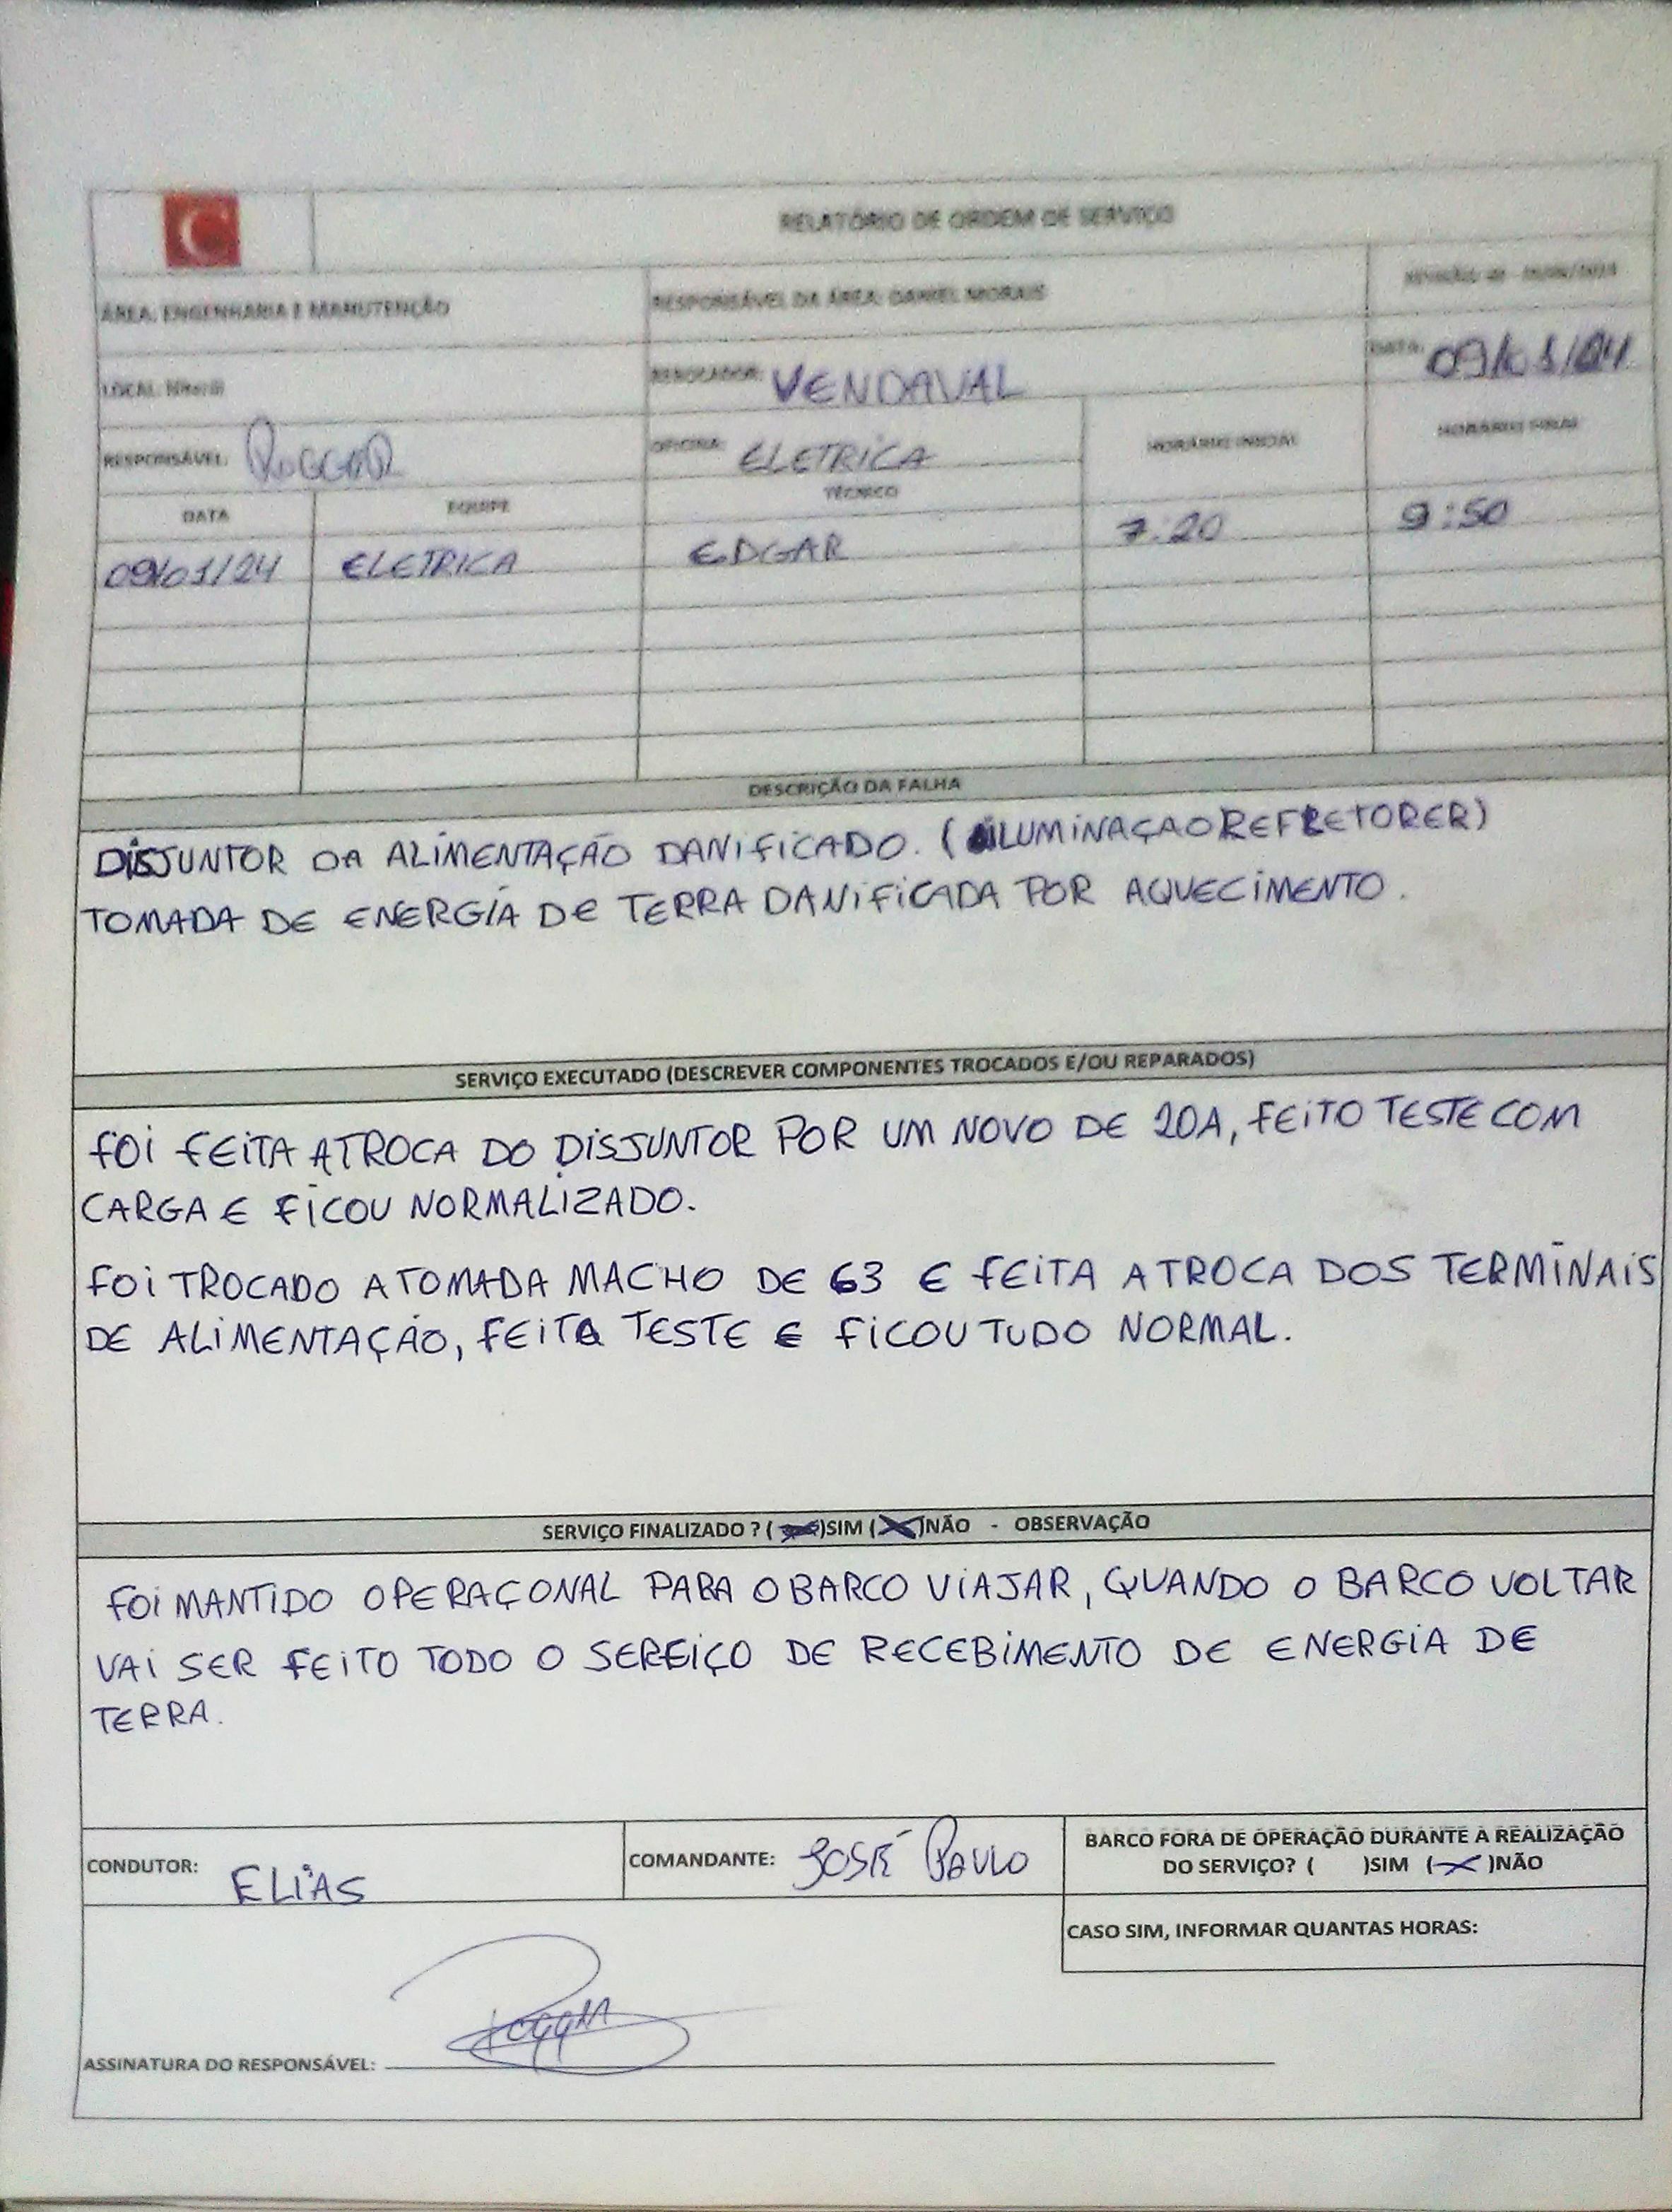 RELATÓRIO DE ORDEM DE SERVIÇO
ÁREA: ENGENHARIA E MANUTENÇÃO
RESPONSÁVEL DA ÁREA: DANIEL MORAIS
REVISÃO:
LOCAL: Niterói
REBOCADOR: VENDAVAL
DATA: 09/01/24
RESPONSÁVEL:
OFICINA: ELETRICA
HORÁRIO INICIAL
HORÁRIO FINAL
DATA EQUIPE TÉCNICO
09/01/24 ELETRICA EDGAR 7:20 9:50
DESCRIÇÃO DA FALHA
DISJUNTOR DA ALIMENTAÇÃO DANIFICADO. (ILUMINAÇAO REFLETORER)
TOMADA DE ENERGIA DE TERRA DANIFICADA POR AQUECIMENTO.
SERVIÇO EXECUTADO (DESCREVER COMPONENTES TROCADOS E/OU REPARADOS)
FOI FEITA A TROCA DO DISJUNTOR POR UM NOVO DE 20A, FEITO TESTE COM
CARGA E FICOU NORMALIZADO.
FOI TROCADO A TOMADA MACHO DE 63 E FEITA A TROCA DOS TERMINAIS
DE ALIMENTAÇÃO, FEITO TESTE E FICOU TUDO NORMAL.
SERVIÇO FINALIZADO ? ( )SIM (X)NÃO - OBSERVAÇÃO
FOI MANTIDO OPERAÇONAL PARA O BARCO VIAJAR, QUANDO O BARCO VOLTAR
VAI SER FEITO TODO O SEREIÇO DE RECEBIMENTO DE ENERGIA DE
TERRA.
CONDUTOR: ELIAS
COMANDANTE: JOSÉ PAULO
BARCO FORA DE OPERAÇÃO DURANTE A REALIZAÇÃO
DO SERVIÇO? ( )SIM (X)NÃO
CASO SIM, INFORMAR QUANTAS HORAS:
ASSINATURA DO RESPONSÁVEL: